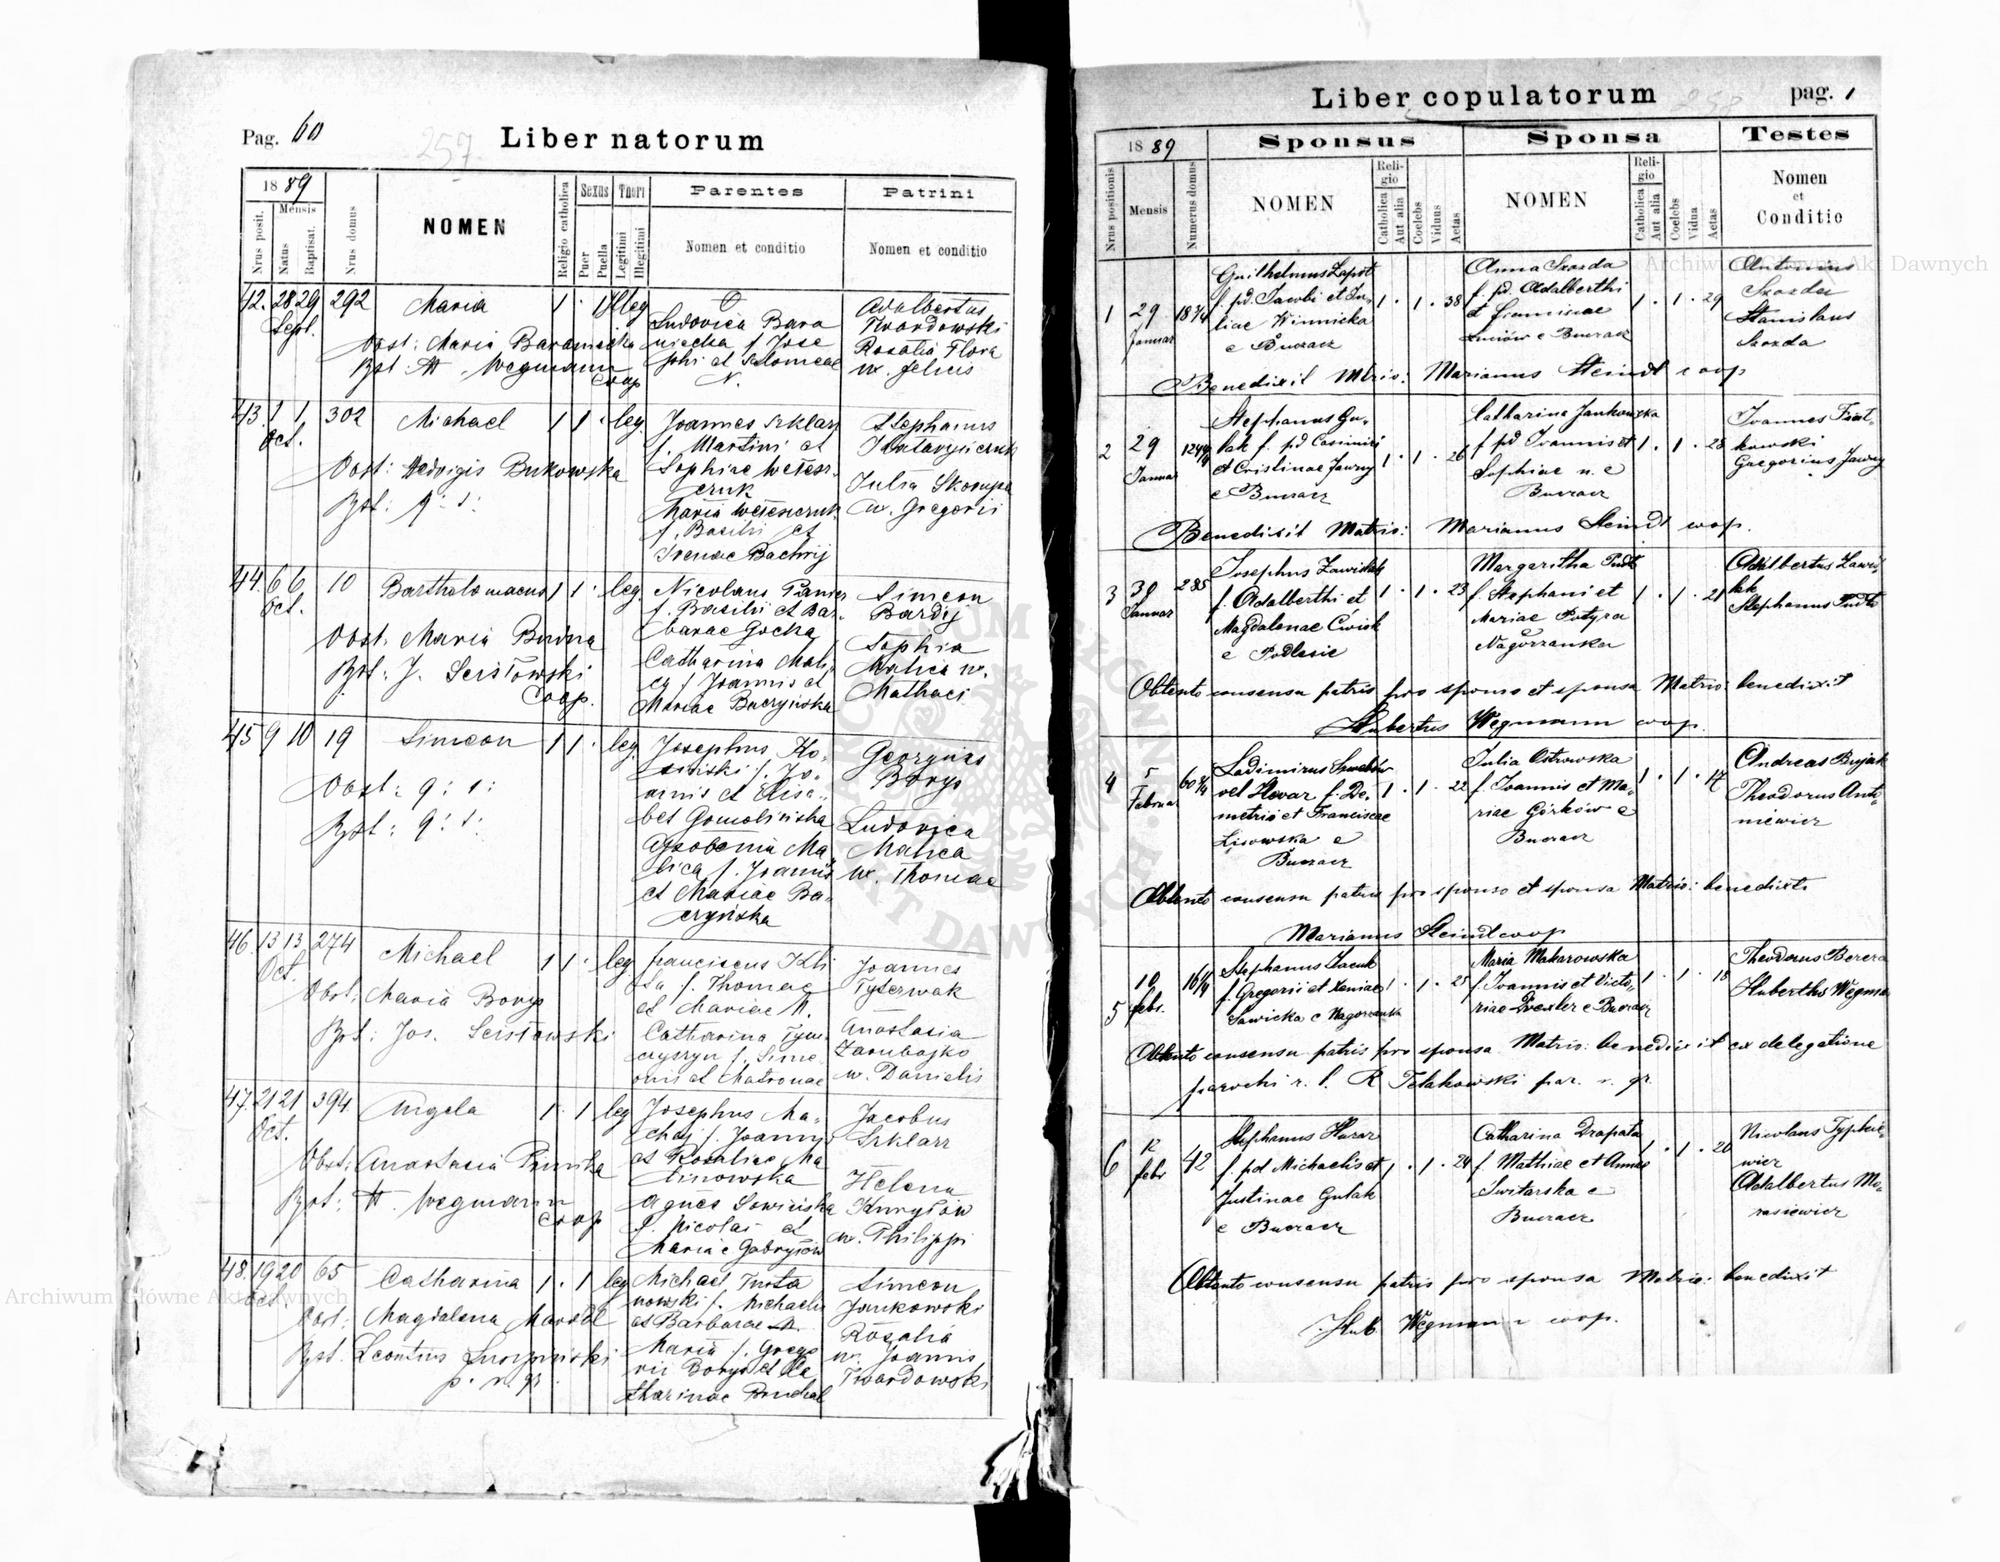 Pag. 60
257
Liber natorum
18 89
Nrus posit.
Mensis
Natus
Baptisat.
Nrus domus
NOMEN
Religio catholica
Sexus
Puer
Puella
Thori
Legitimi
Illegitimi
Parentes
Nomen et conditio
Patrini
Nomen et conditio
42. 28 29 292 Maria 1 · 1 Illeg
Sept.
Obst: Maria Baraniecka
Bpt: H. Wegmann
coop
O
Ludovica Bara
niecka f. Jose
phi et Salomeae
N.
Adalbertus
Twardowski
Rosalia Flora
ux. Felicis
43. 1 1. 302 Michael 1 1 · leg.
Oct.
Obst: Hedvigis Bukowska
Bpt: q: s:
Joannes Szklarz
f. Martini et
Sophiae
Maria
f. Basilii et
Irenae Bachrij
Stephanus
Julia Skorupa
ux. Gregorii
44. 6 6 10 Bartholomaeus 1 1 · leg.
Oct.
Obst. Maria Budna
Bpt: J. Scisłowski
Coop.
Nicolaus
f. Basilii et Bar-
barae Gocka
Catharina Mali
ca f Joannis et
Mariae Baczyńska
Simeon
Bardij
Sophia
Malica ux.
Mathaei
45 9 10 19 Simeon 1 1 · leg.
Obst: q: s:
Bpst: q: s:
Josephus Ko-
siński f. Jo-
annis et Elisa-
bet Gomolińska
Ma
lica f. Joannis
et Mariae Ba-
czyńska
Georgius
Borys
Ludovica
Malica
ux. Thomae
46. 13 13 274 Michael 1 1 · leg
Oct.
Obst: Maria Borys
Bpt: Jos. Scisłowski
franciscus Kli
sa f. Thomae
et Mariae N.
Catharina Tym
czyszyn f. Sime
onis et Matronae
Joannes
Tyserwak
Anastasia
Zarubajko
ux. Danielis
47. 21 21 394 Angela 1 · 1 leg
Oct.
Obst: Anastasia
Bpt: H. Wegmann
coop
Josephus Ma-
chaj f. Joannis
et Rosaliae Ma
linowska
Agnes Sowińska
f. Nicolai et
Mariae Gabryłów
Jacobus
Szklarz
Helena
Kuryłów
ux. Philippi
48. 19 20 65 Catharina 1 · 1 leg
Oct.
Obst: Magdalena
Bpt.
p. r. gr.
Michael
nowski f. Michaelis
et Barbarae N.
Maria f. Grego
rii Borys et Ca
tharinae
Simeon
Jankowski
Rosalia
ux. Joannis
Twardowski
Liber copulatorum
258
pag. 1
18 89
Nrus positionis
Mensis
Numerus domus
Sponsus
NOMEN
Religio
Catholica
Aut alia
Coelebs
Viduus
Aetas
Sponsa
NOMEN
Religio
Catholica
Aut alia
Coelebs
Vidua
Aetas
Testes
Nomen
et
Conditio
1 29 Januar
Guilhelmus Lapot
f. pd. Jacobi et Ju-
liae Winnicka
e Buczacz
1 · 1 · 38
Anna Szozda
f. pd. Adalberthi
et Franciscae
e Buczacz
1 · 1 · 29
Antonius
Szozda
Stanislaus
Szozda
Benedixit Mtris: Marianus Steindl coop
2 29 Januar
Stephanus Gu-
lak f. pd Casimiri
et Cristinae Jawny
e Buczacz
1 · 1 · 26
Catharina Jankowska
f pd Joannis et
Sophiae n. e
Buczacz
1 · 1 · 28
Joannes
kowski
Gregorius Jawny
Benedixit Matris: Marianus Steindl coop.
3 30 Januar 285
Josephus Zawislak
f. Adalberthi et
Magdalenae Ćwiok
e Podlesie
1 · 1 · 23
Margaritha
f. Stephani et
Mariae Potyra
Nagórzanka
1 · 1 · 21
Adalbertus Zawis-
lak
Stephanus
Obtento consensu patris pro sponso et sponsa Matris: benedixit
Hubertus Wegmann coop.
4 5 Februar
Ladimirus
vel Howar f. De-
metrii et Franciscae
Lisowska e
Buczacz
1 · 1 · 22
Julia Ostrowska
f. Joannis et Ma-
riae Górków e
Buczacz
1 · 1 · 17
Andreas Bujak
Theodorus Anto-
niewicz
Obtento consensu patris pro sponso et sponsa Matris: benedixit
Marianus Steindl coop
5 10 febr.
Stephanus Jacuk
f. Gregorii et Xeniae
Sawicka e Nagórzanka
1 · 1 · 25
Maria Makarowska
f. Joannis et Victo-
riae Drexler e Buczacz
1 · 1 · 18
Theodorus Bereza
Huberthus Wegmann
Obtento consensu patris pro sponsa Matris: benedixit ex delegatione
parochi r. l. R Telakowski par. r. gr.
6 12 febr 42
Stephanus Huzar
f. pd Michaelis et
Justinae Gulak
e Buczacz
1 · 1 · 24
Catharina Drapata
f. Mathiae et Annae
Switarska e
Buczacz
1 · 1 · 20
Nicolaus Typkie-
wicz
Adalbertus Mo-
rasiewicz
Obtento consensu patris pro sponsa Matris: benedixit
Hub Wegmann coop.
Archiwum Główne Akt Dawnych
Archiwum Główne Akt Dawnych
ARCHIWUM GŁÓWNE AKT DAWNYCH